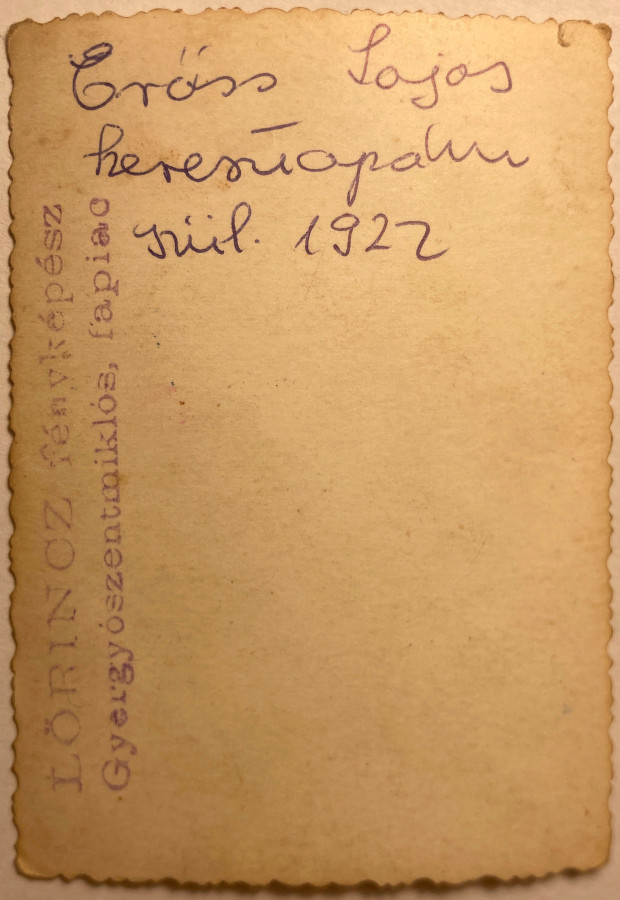 Erőss Lajos
keresztapám
szül. 1922
LŐRINCZ fényképész
Gyergyószentmiklós, fapiac